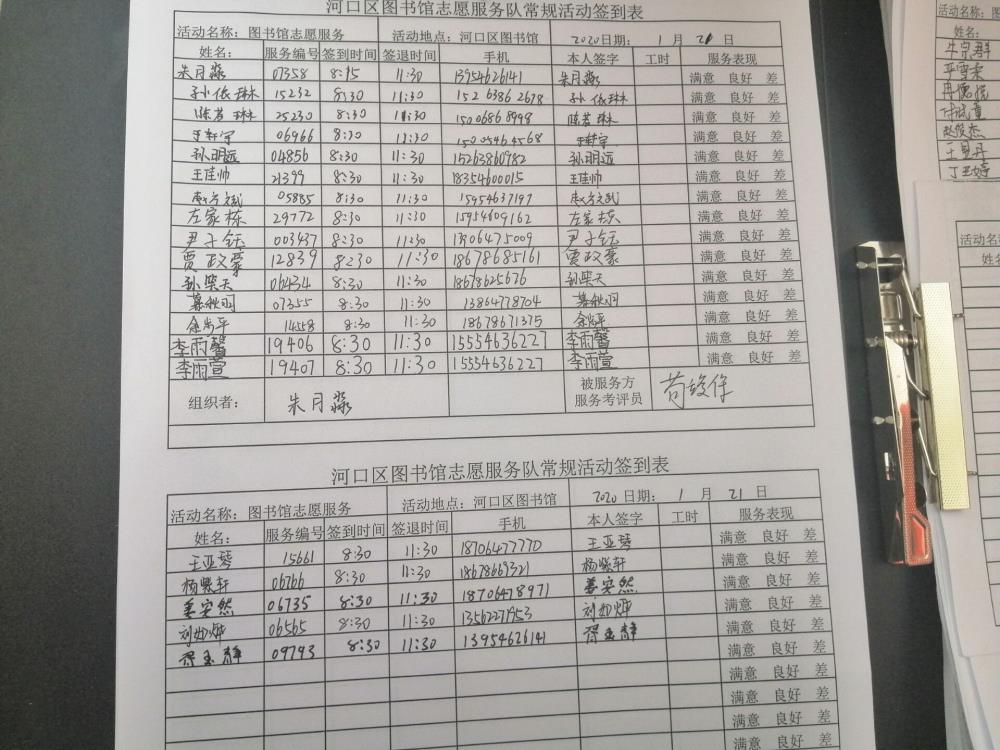 河口区图书馆志愿服务队常规活动签到表
活动名称：图书馆志愿服务 活动地点：河口区图书馆 2020日期： 1 月 21 日
姓名： 服务编号 签到时间 签退时间 手机 本人签字 工时 服务表现
朱月淼 07358 8:15 11:30 13954626141 朱月淼 满意 良好 差
孙依琳 15232 8:30 11:30 152 6386 2678 孙依琳 满意 良好 差
陈茗琳 25230 8:30 11:30 15006868998 陈茗琳 满意 良好 差
王轩宇 06966 8:30 11:30 15005464568 王轩宇 满意 良好 差
孙明远 04856 8:30 11:30 15263860982 孙明远 满意 良好 差
王佳帅 21399 8:30 11:30 18354600015 王佳帅 满意 良好 差
赵方斌 05885 8:30 11:30 15954637197 赵方斌 满意 良好 差
左家栋 29772 8:30 11:30 15954609162 左家栋 满意 良好 差
尹子钰 003437 8:30 11:30 13906475009 尹子钰 满意 良好 差
贾政豪 12839 8:30 11:30 18678685161 贾政豪 满意 良好 差
孙柴天 06434 8:30 11:30 18678625676 孙柴天 满意 良好 差
綦秋羽 07355 8:30 11:30 13864778704 綦秋羽 满意 良好 差
余尚平 14558 8:30 11:30 18678671375 余尚平 满意 良好 差
李雨馨 19406 8:30 11:30 15554636227 李雨馨 满意 良好 差
李雨萱 19407 8:30 11:30 15554636227 李雨萱 满意 良好 差
组织者： 朱月淼 被服务方 服务考评员 苟
河口区图书馆志愿服务队常规活动签到表
活动名称：图书馆志愿服务 活动地点：河口区图书馆 2020 日期： 1 月 21 日
姓名： 服务编号 签到时间 签退时间 手机 本人签字 工时 服务表现
王亚琴 15661 8:30 11:30 18706477770 王亚琴 满意 良好 差
杨紫轩 06766 8:30 11:30 18678669321 杨紫轩 满意 良好 差
姜安然 06735 8:30 11:30 18706478971 姜安然 满意 良好 差
刘如烨 06565 8:30 11:30 13562271953 刘如烨 满意 良好 差
玉静 09793 8:30 11:30 13954626141 玉静 满意 良好 差
满意 良好 差
满意 良好 差
满意 良好 差
满意 良好 差
活动名称：
牛宗群
丁丑婷
活动名
姓名